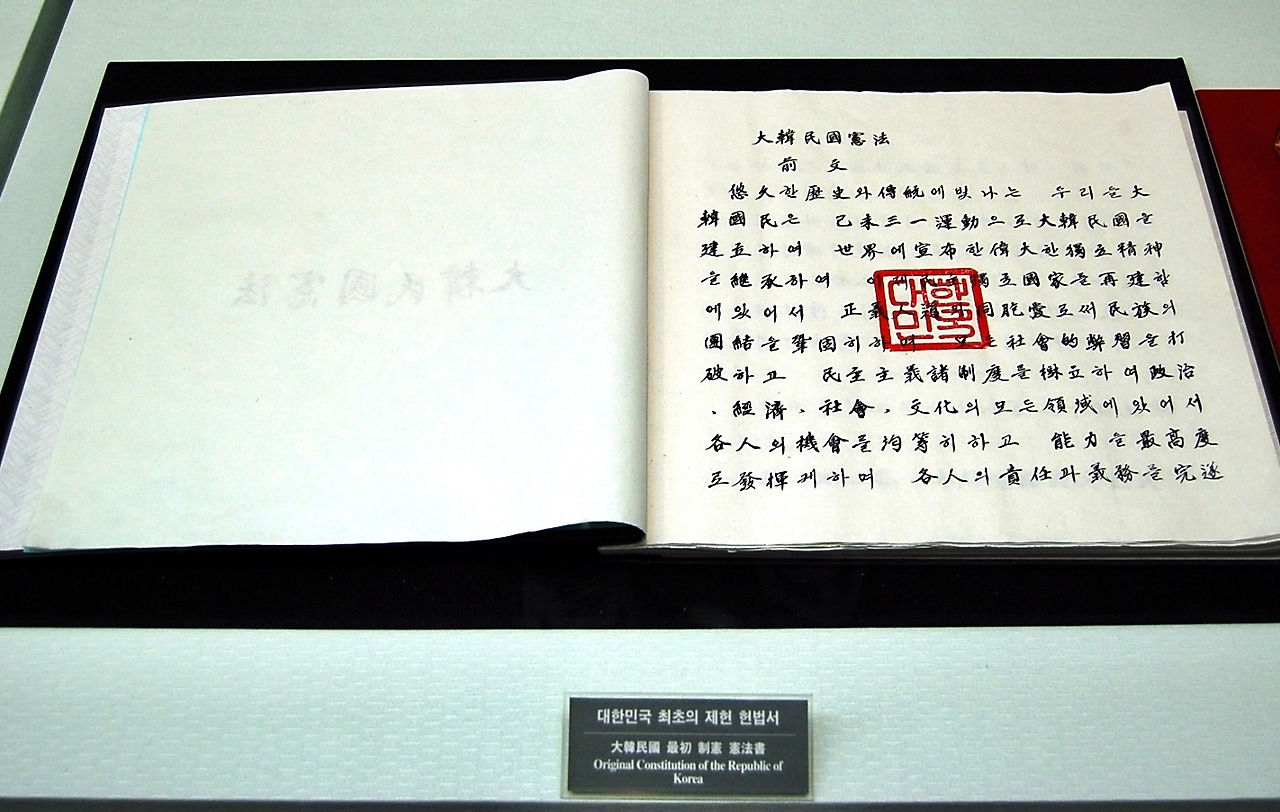 大韓民國憲法
前 文
悠久한 歷史와 傳統에 빛나는 우리들 大
韓國民은 己未三一運動으로 大韓民國을
建立하여 世界에 宣布한 偉大한 獨立精神
을 繼承하여 이제 民主獨立國家를 再建함
에 있어서 正義人道와 同胞愛로써 民族의
團結을 鞏固히하며 모든 社會的 弊習을 打
破하고 民主主義諸制度를 樹立하여 政治
, 經濟, 社會, 文化의 모든 領域에 있어서
各人의 機會를 均等히하고 能力을 最高度
로 發揮케하며 各人의 責任과 義務를 完遂
대한민국
大韓民國憲法
대한민국 최초의 제헌 헌법서
大韓民國 最初 制憲 憲法書
Original Constitution of the Republic of
Korea